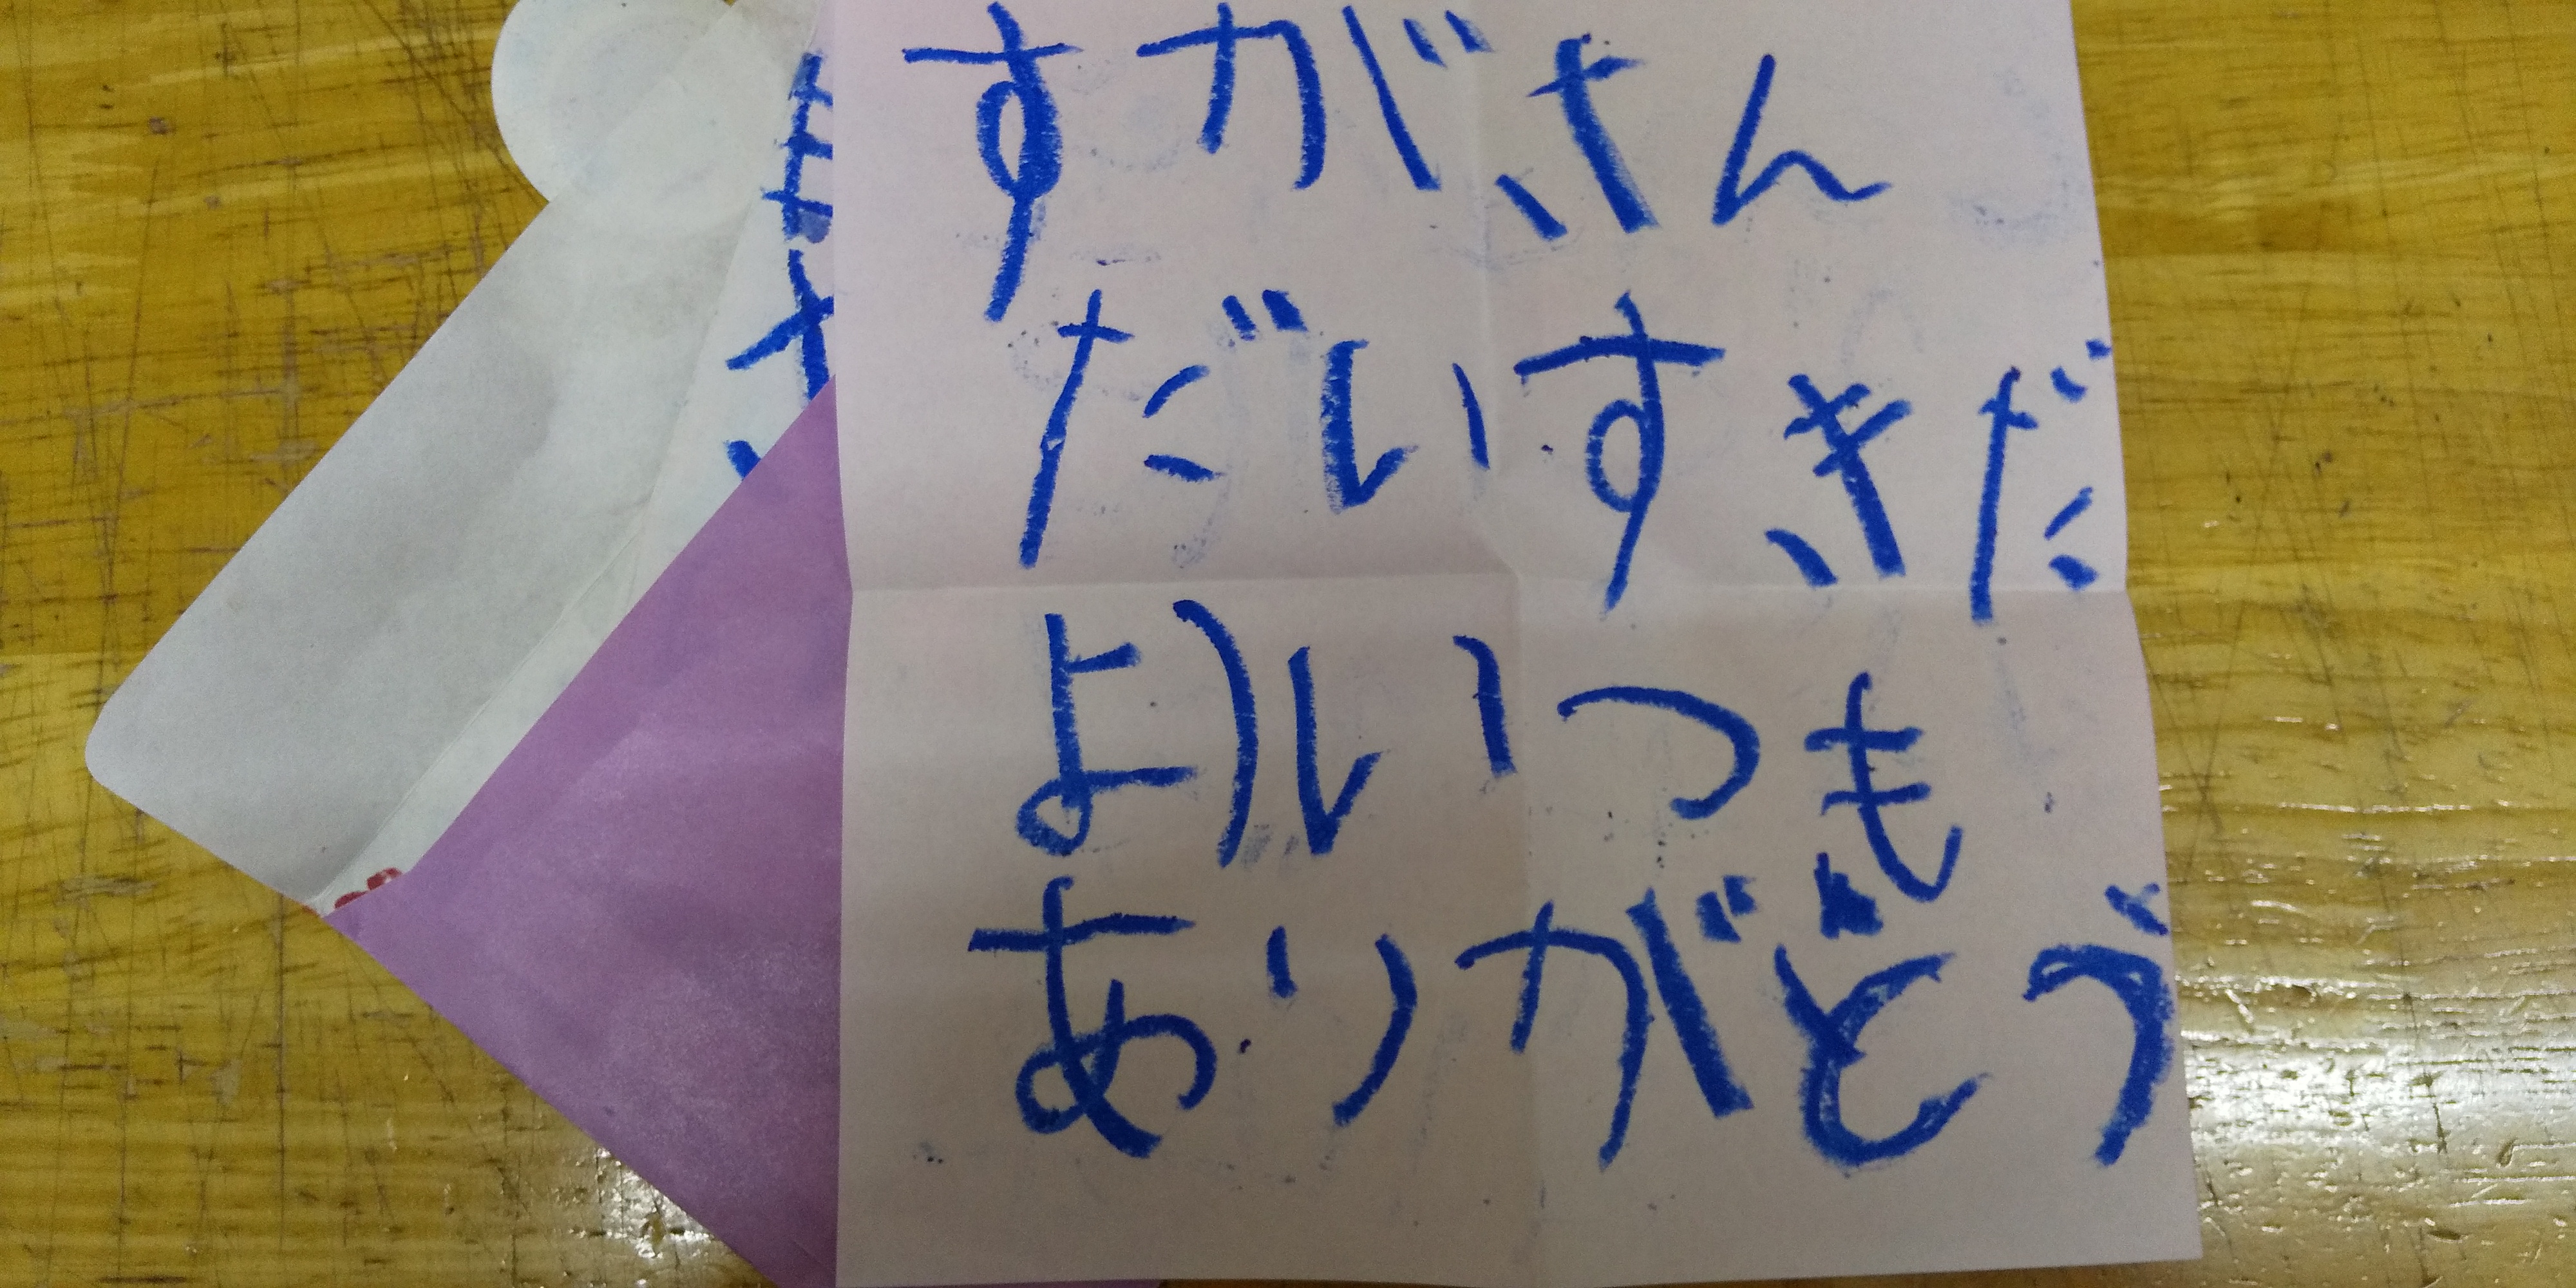 すがさん
だいすきだ
よ)いつも
ありがとう